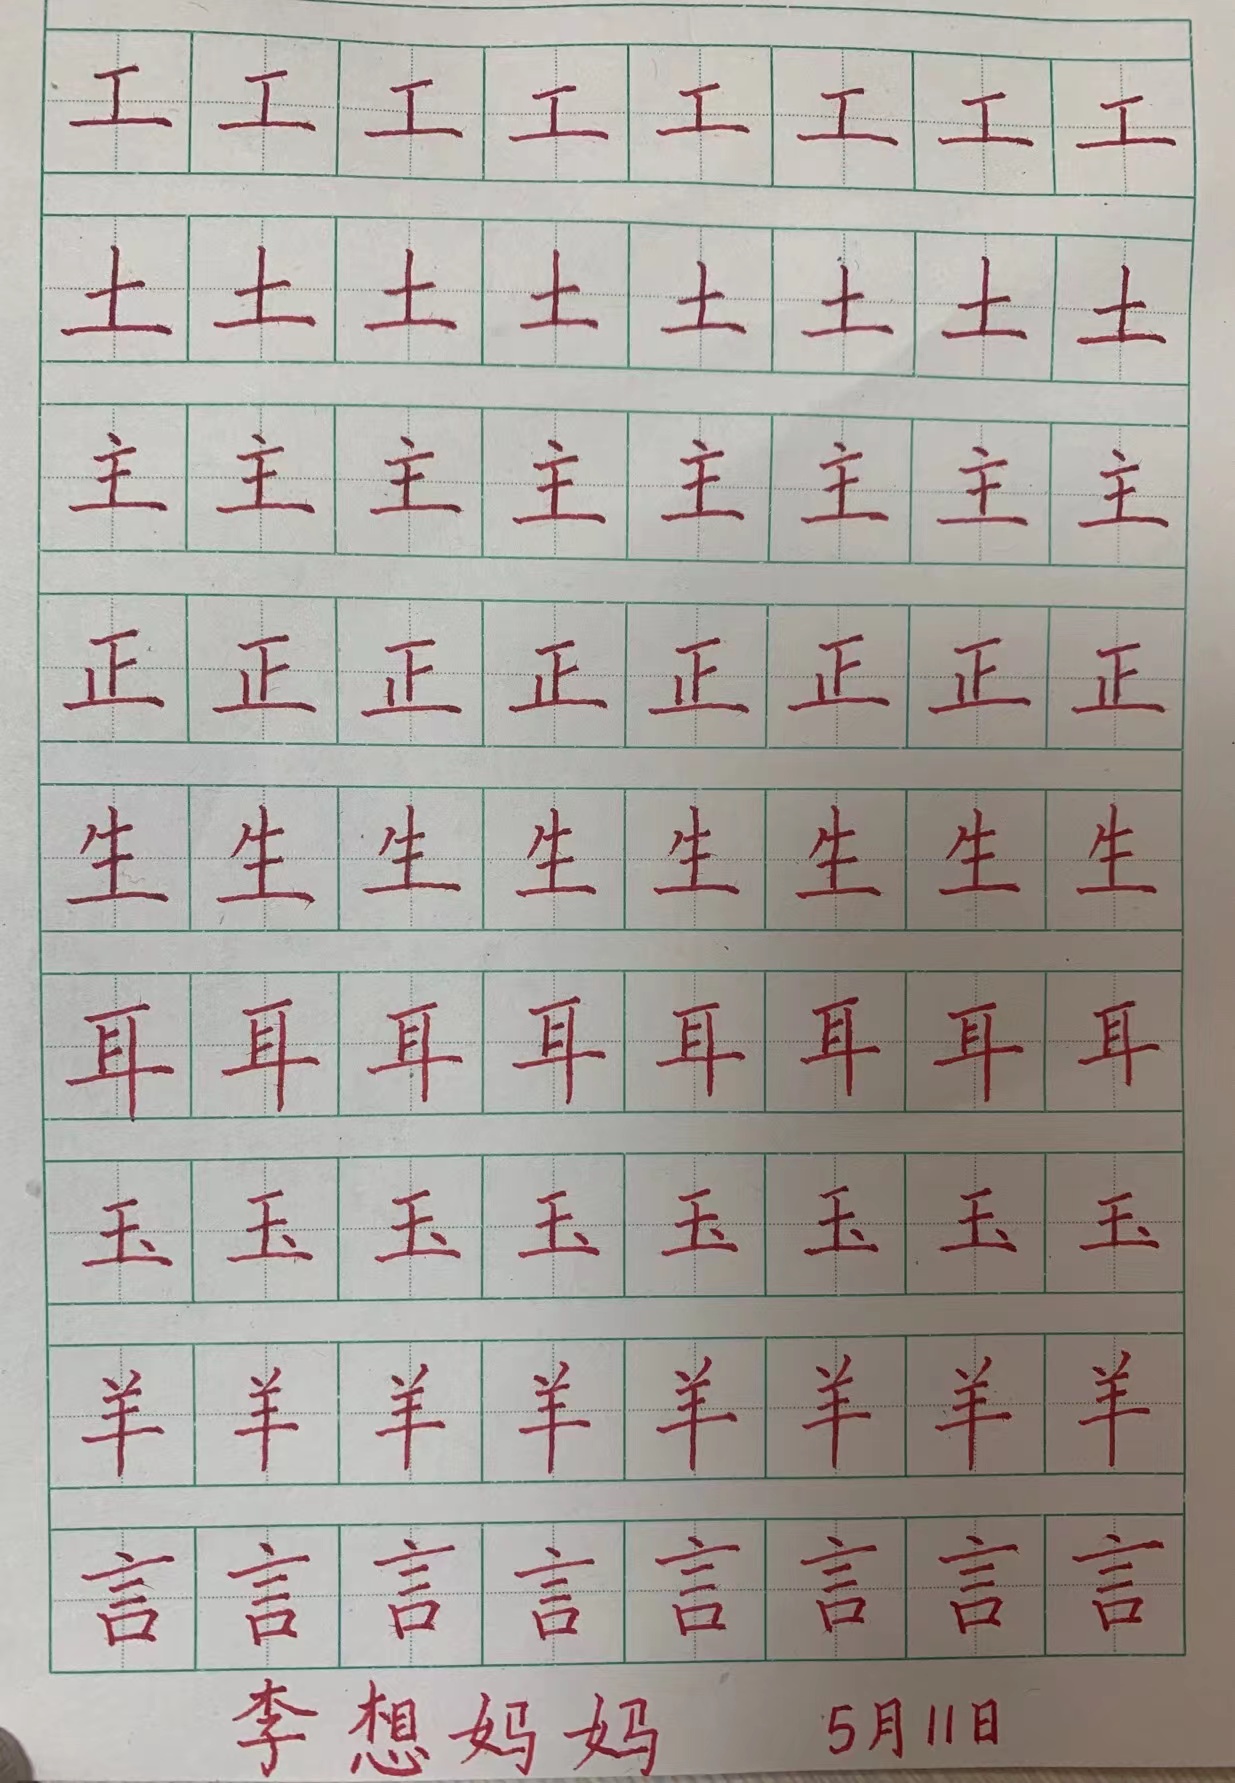 工工工工工工工工
土土土土土土土土
主主主主主主主主
正正正正正正正正
生生生生生生生生
耳耳耳耳耳耳耳耳
玉玉玉玉玉玉玉玉
羊羊羊羊羊羊羊羊
言言言言言言言言
李想妈妈 5月11日